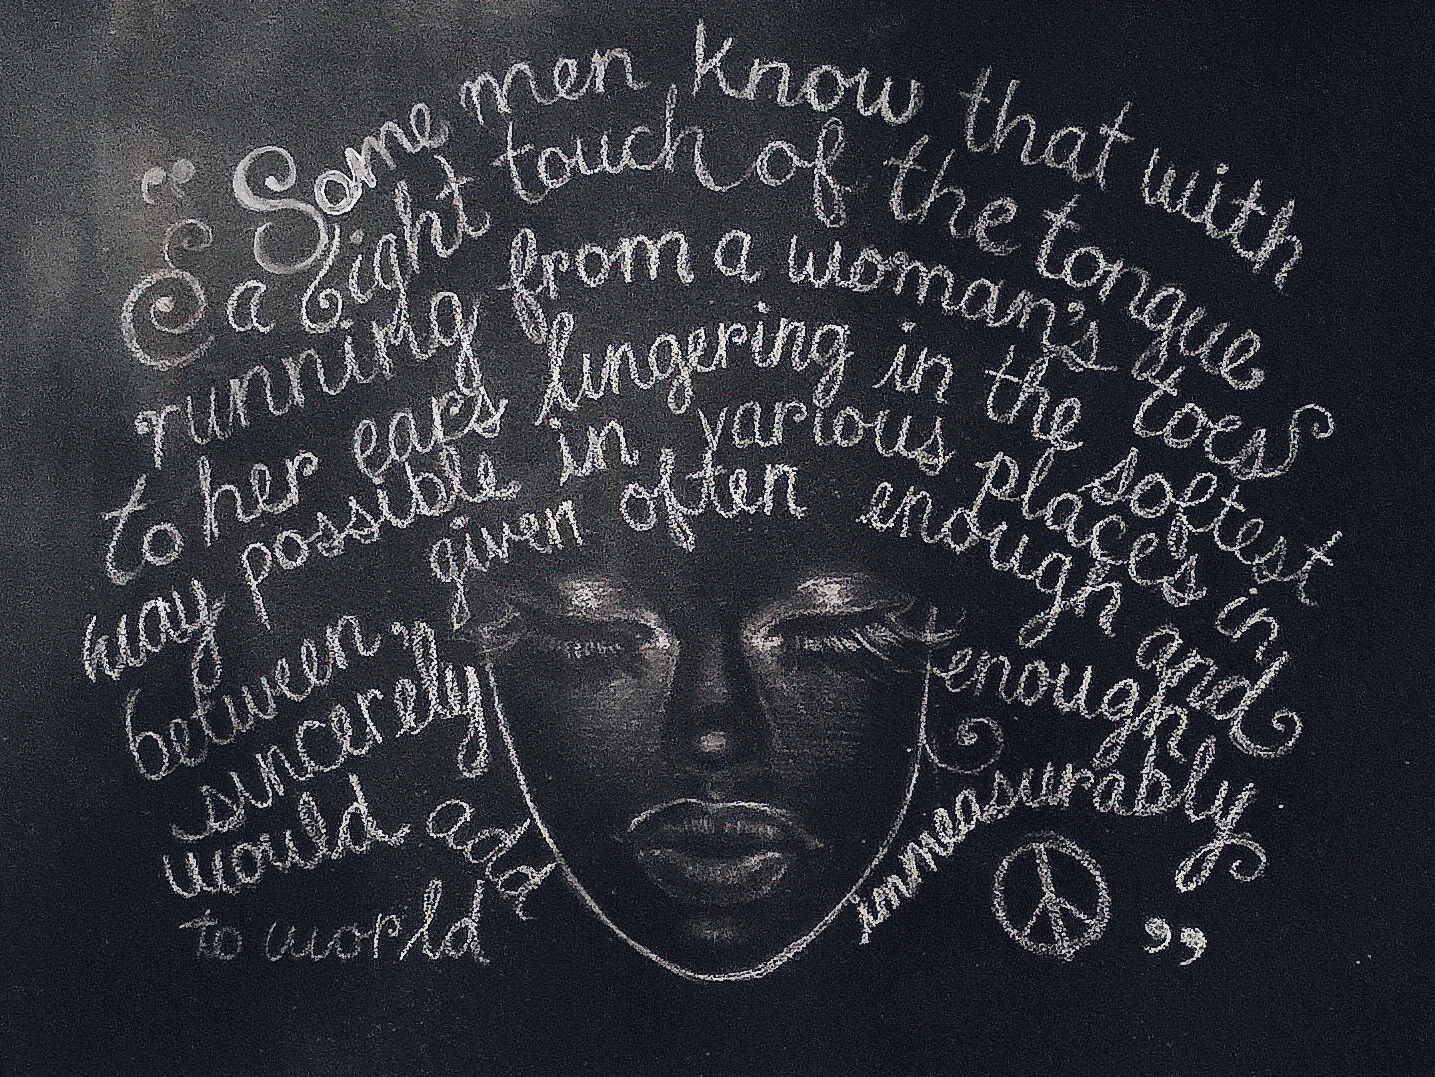 “Some men know that with
a light touch of the tongue
running from a woman's toes
to her ears lingering in the softest
way possible in various places in
between, given often enough and
sincerely enough
would add immeasurably
to world ”